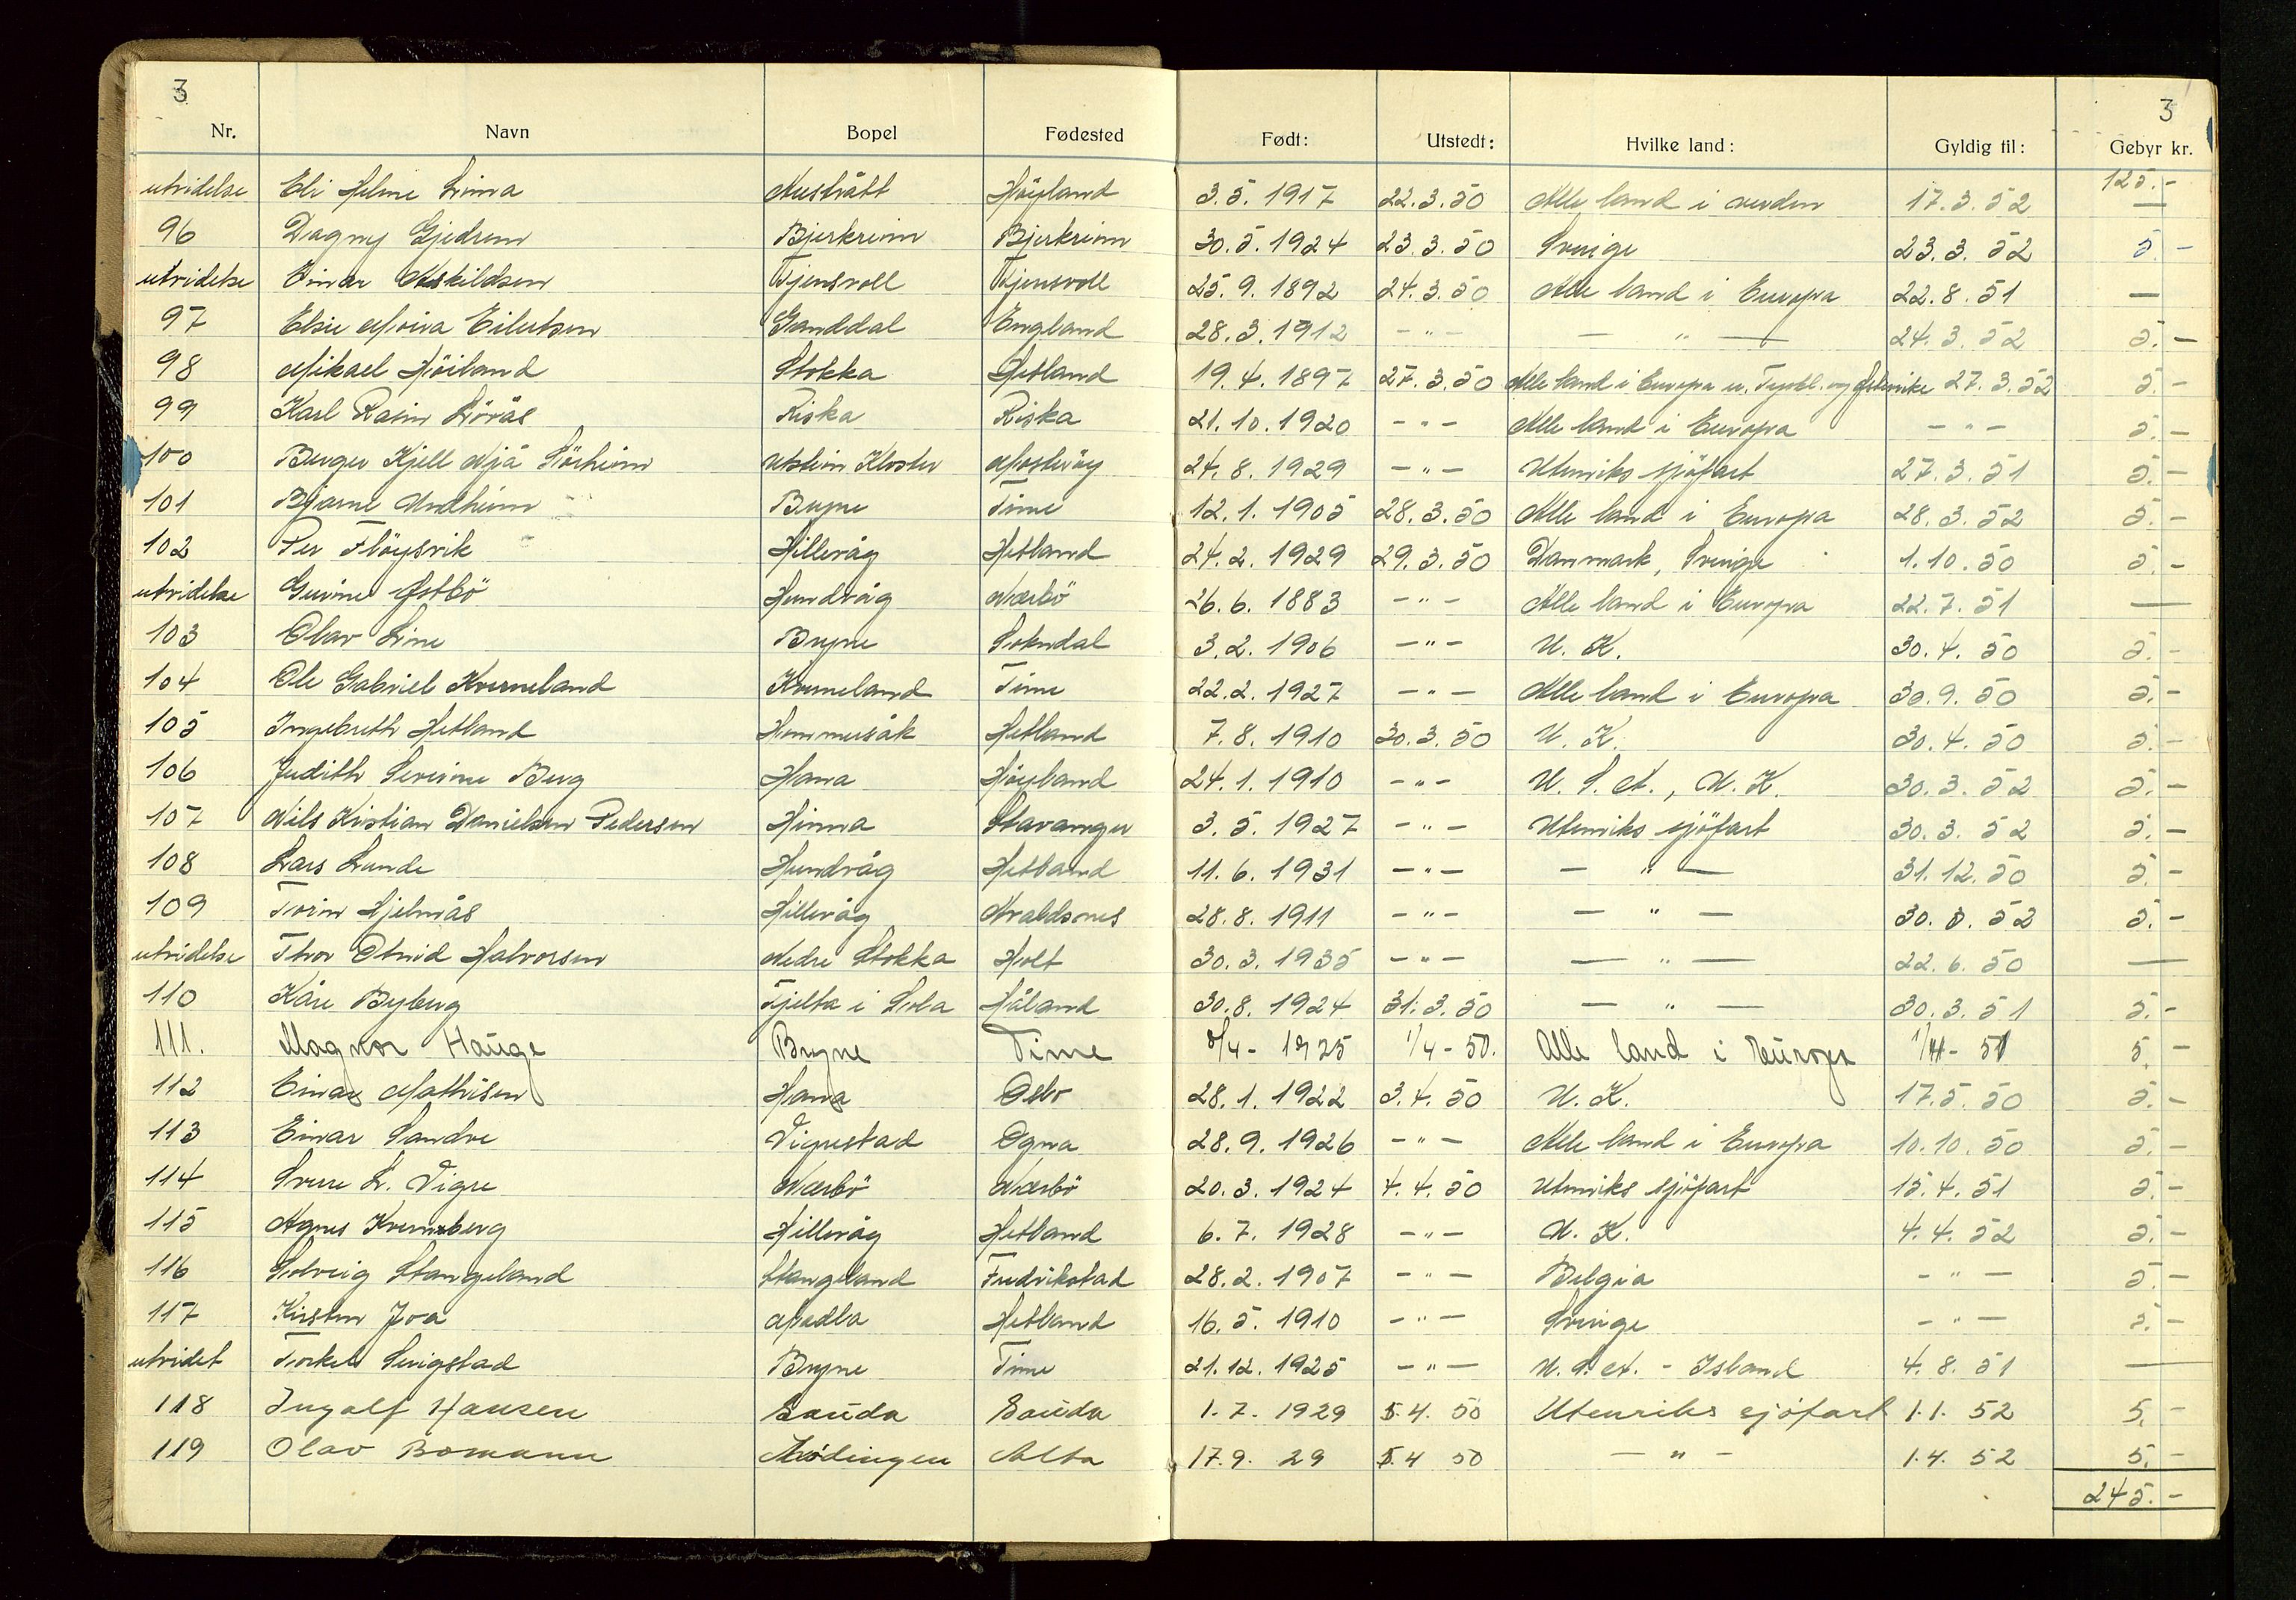 3 3
Nr. Navn Bopel Fødested Født: Utstedt: Hvilke land: Gyldig til: Gebyr kr.
125.-
utvidelse Eli Helene Lima Austrått Höyland 3.5.1917 22.3.50 Alle land i verden 17.3.52 —
96 Dagny Gjedrem Bjerkreim Bjerkreim 30.5.1924 23.3.50 Sverige 23.3.52 5.-
utvidelse Einar Askildsen Tjensvoll Tjensvoll 25.9.1892 24.3.50 Alle land i Europa 22.8.51 —
97 Elsie Moiva Eilertsen Ganddal England 28.3.1912 -"- — " — 24.3.52 5.-
98 Mikael Höiland Stokka Hetland 19.4.1897 27.3.50 Alle land i Europa u. Tyskl. og Østerrike 27.3.52 5.-
99 Karl Rasin Lörås Riska Riska 21.10.1920 -"- Alle land i Europa -"- 5.-
100 Berger Kjell Njå Sörheim Utstein Kloster Mosteröy 24.8.1929 -"- Utenriks sjöfart 27.3.51 5.-
101 Bjarne Undheim Bryne Time 12.1.1905 28.3.50 Alle land i Europa 28.3.52 5.-
102 Per Flöysvik Hillevåg Hetland 24.2.1929 29.3.50 Danmark, Sverige 1.10.50 5.-
utvidelse Gurine Østbö Hundvåg Nærbö 26.6.1883 -"- Alle land i Europa 22.7.51 —
103 Olav Line Bryne Sokndal 3.2.1906 -"- U.K. 30.4.50 5.-
104 Ole Gabriel Kverneland Kverneland Time 22.2.1927 -"- Alle land i Europa 30.9.50 5.-
105 Ingebreth Hetland Hommersåk Hetland 7.8.1910 30.3.50 U.K. 30.4.50 5.-
106 Judith Severine Berg Hana Höyland 24.1.1910 -"- U.S.A., U.K. 30.3.52 5.-
107 Nils Kristian Danielsen Pedersen Hinna Stavanger 3.5.1927 -"- Utenriks sjöfart 30.3.52 5.-
108 Lars Lunde Hundvåg Hetland 11.6.1931 -"- — " — 31.12.50 5.-
109 Torin Hjelmås Hillevåg Avaldsnes 28.8.1911 -"- — " — 30.3.52 5.-
utvidelse Thor Otnid Halvorsen Nedre Stokka Holt 30.3.1935 -"- — " — 22.6.50 —
110 Kåre Byberg Tjelta i Sola Håland 30.8.1924 31.3.50 — " — 30.3.51 5.-
111. Magnor Hauge Bryne Time 8/4-1925 1/4-50. Alle land i Europa 51 5.-
112 Einar Mathisen Hana Oslo 28.1.1922 3.4.50 U.K. 17.5.50 5.-
113 Einar Sandve Vigrestad Ogna 28.9.1926 -"- Alle land i Europa 10.10.50 5.-
114 Sverre L. Vigre Nærbö Nærbö 20.3.1924 4.4.50 Utenriks sjöfart 15.4.51 5.-
115 Agnes Kvernberg Hillevåg Hetland 6.7.1928 -"- U.K. 4.4.52 5.-
116 Solveig Stangeland Stangeland Fredrikstad 28.2.1907 -"- Belgia -"- 5.-
117 Kirsten Joa Madla Hetland 16.5.1910 -"- Sverige -"- 5.-
utvidet Torkel Serigstad Bryne Time 21.12.1925 -"- U.S.A. - Island 4.8.51 —
118 Ingolf Hansen Sauda Sauda 1.7.1929 5.4.50 Utenriks sjöfart 1.1.52 5.-
119 Olav Bomann Alta 17.9.29 5.4 50 — " — 1.4.52 5.-
245.-